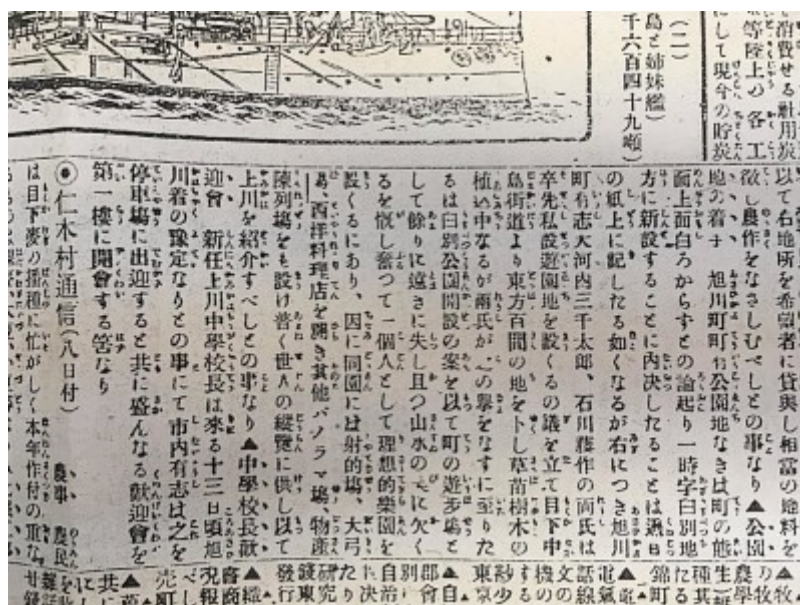 消費せる社用炭
等陸上の各工
にして現今の貯炭
(二)
島と姉妹艦)
千六百四十九噸)
以て右地所を希望者に貸與し相當の地料を
徴し農作をなさしむべしとの事なり▲公園
地の着手 旭川町町有公園地なきは町の體
面上面白ろからずとの論起り一時字臼別地
方に新設することに内決したることは過日
の紙上に記したる如くなるが右につき旭川
町有志大河内三千太郎、石川 作の両氏は
卒先私設遊園地を設くるの議を立て目下中
島街道より東方百間の地を卜し草苗樹木の
植込中なるが兩氏が此の擧をなすに至りた
るは臼別公園開設の案を以て町の遊歩塲と
して餘りに遠きに失し且つ山水の美に欠く
るを慨し奮つて一個人として理想的樂園を
設くるにあり、因に同園には射的塲、大弓
塲、西洋料理店を開き其他パノラマ塲、物産
陳列塲をも設け普く世人の縦覽に供し以て
上川を紹介すべしとの事なり▲中學校長歡
迎會 新任上川中學校長は來る十三日頃旭
川着の豫定なりとの事にて市内有志は之を
停車塲に出迎すると共に盛んなる歡迎會を
第一樓に開會する筈なり
◉仁木村通信(八日付) 農事 農民
は目下麥の播種に忙がしく本年作付の重な
▲牧
の牧
農學
生一
種其
たる
錦町
▲電
電氣
話線
文の
機の
する
紗少
東京
▲自
郡會
別に
自治
け決
たり
研究
錢東
發行
▲織
審商
況報
べし
売町
共に